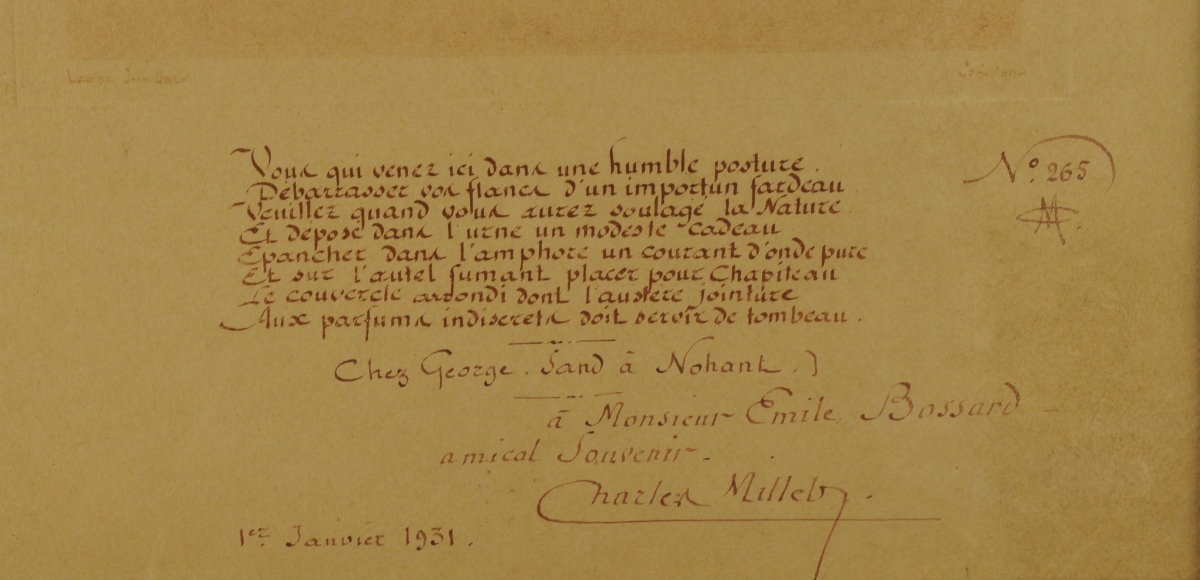 Vous qui venez ici dans une humble posture.
Débarrasser vos flancs d'un importun fardeau
Veuillez quand vous aurez soulagé la Nature
Et déposé dans l'urne un modeste cadeau
Epancher dans l'amphore un courant d'onde pure
Et sur l'autel fumant placer pour Chapiteau
Le couvercle arrondi dont l'austère jointure
Aux parfums indiscrets doit servir de tombeau.
Chez George Sand à Nohant.)
à Monsieur Emile Bossard
amical Souvenir.
Charles Millet
1er Janvier 1931.
No. 265